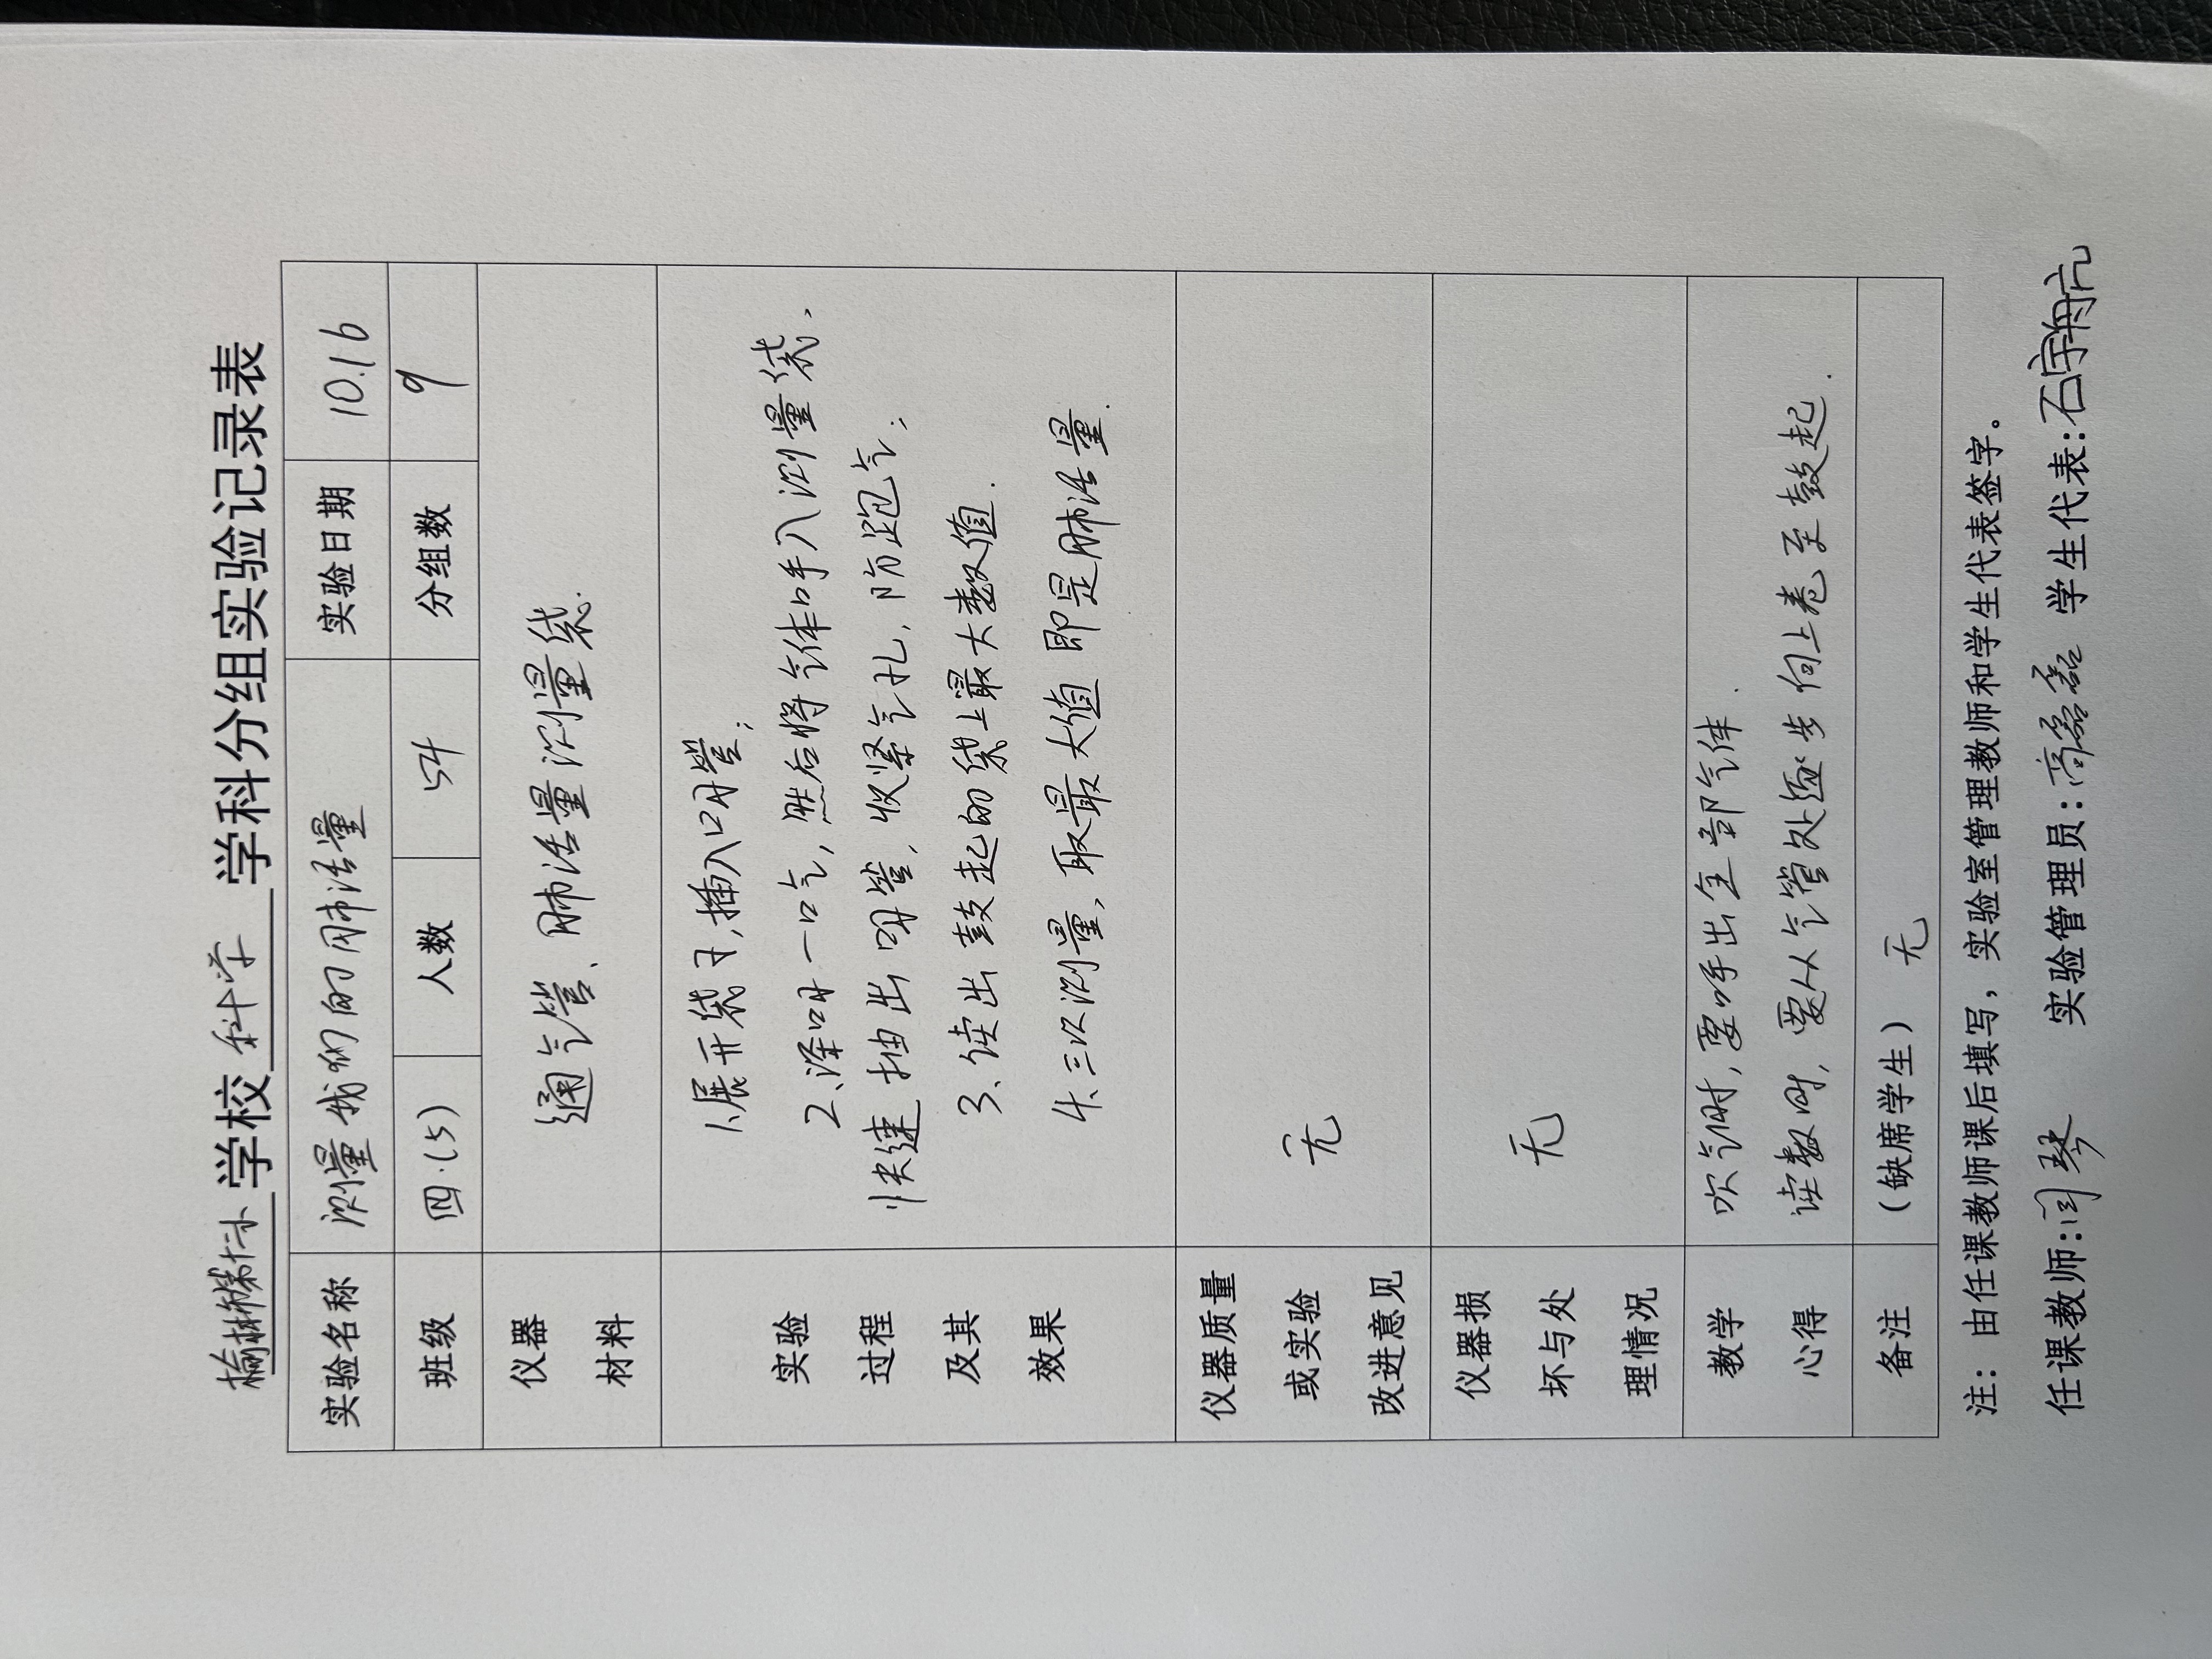 榆林第十小学校 科学 学科分组实验记录表
实验名称 测量我们的肺活量 实验日期 10.16
班级 四.(5) 人数 54 分组数 9
仪器材料 通气管、肺活量测量袋.
实验过程及其效果
1.展开袋子,插入口吹管;
2、深吸一口气,然后将气体呼入测量袋,
快速抽出吹管,收紧气孔,防跑气;
3、读出鼓起的袋上最大数值.
4、三次测量,取最大值即是肺活量.
仪器质量或实验改进意见 无
仪器损坏与处理情况 无
教学心得 吹气时,要呼出全部气体.
读数时,要从气管处逐步向上卷至鼓起.
备注 (缺席学生) 无
注:由任课教师课后填写,实验室管理教师和学生代表签字。
任课教师:闫琴 实验管理员:高磊磊 学生代表:石